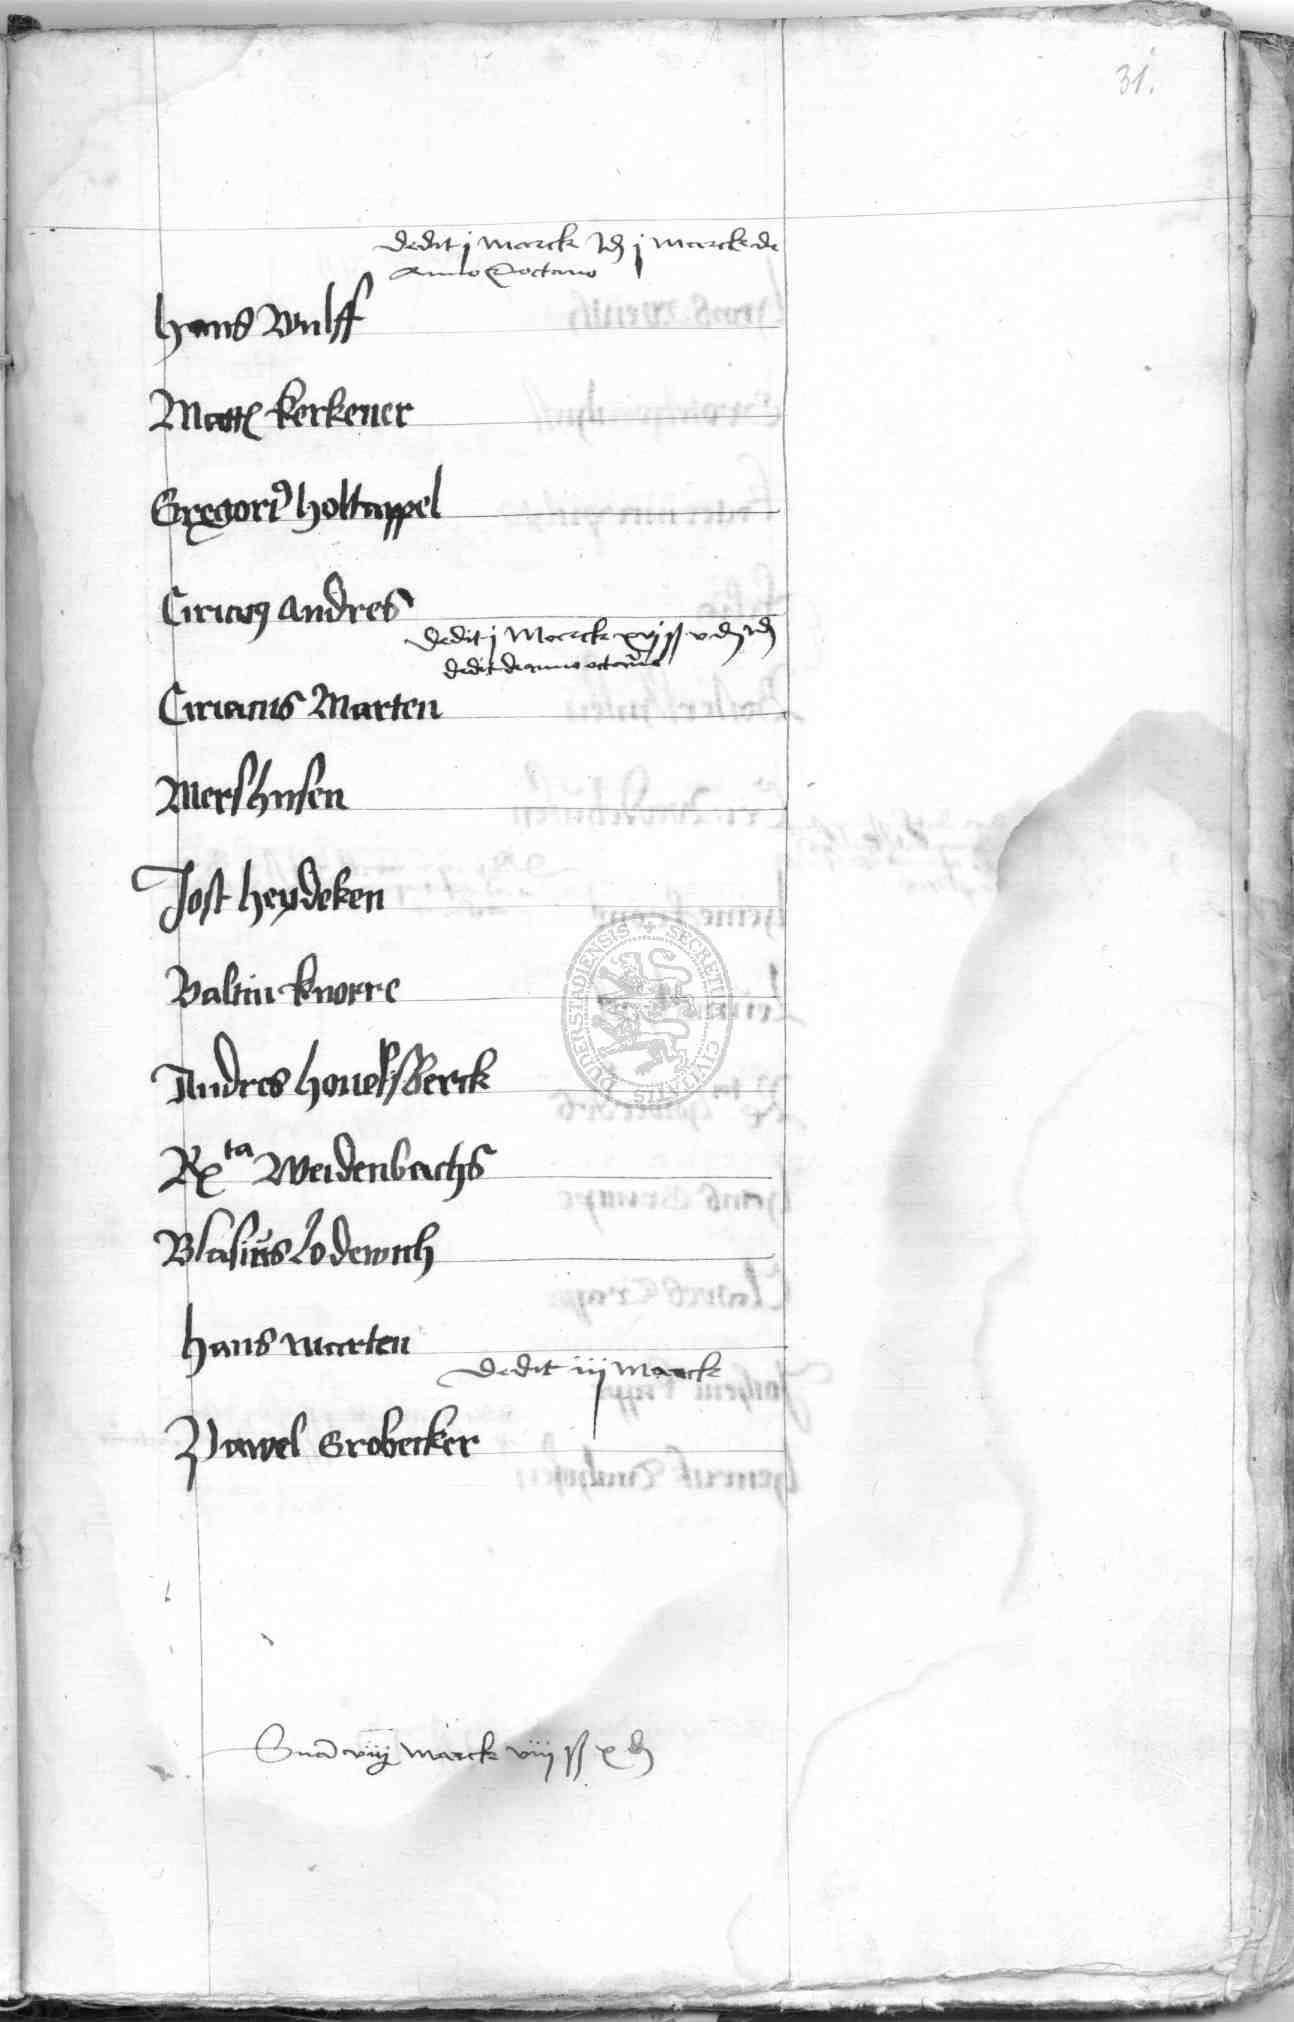 31.
dedit j marck Id j marck de
Anno octavo
hans wulff
Matt kerkener
Gregori9 holtappel
Ciriac9 andres
Dedit j Marck xvj ß v d Id
dedit de anno octavo
Ciriacus Marten
Mershusen
Jost heydeken
Valtin knorre
Andres hovelsberck
Rta Weidenbachs
Blasius Lodewich
hans marten
Dedit iij marck
Pawel Grobecker
viij marck viij ß x d
SECRETU CIVITATIS DUDERSTADIENSIS